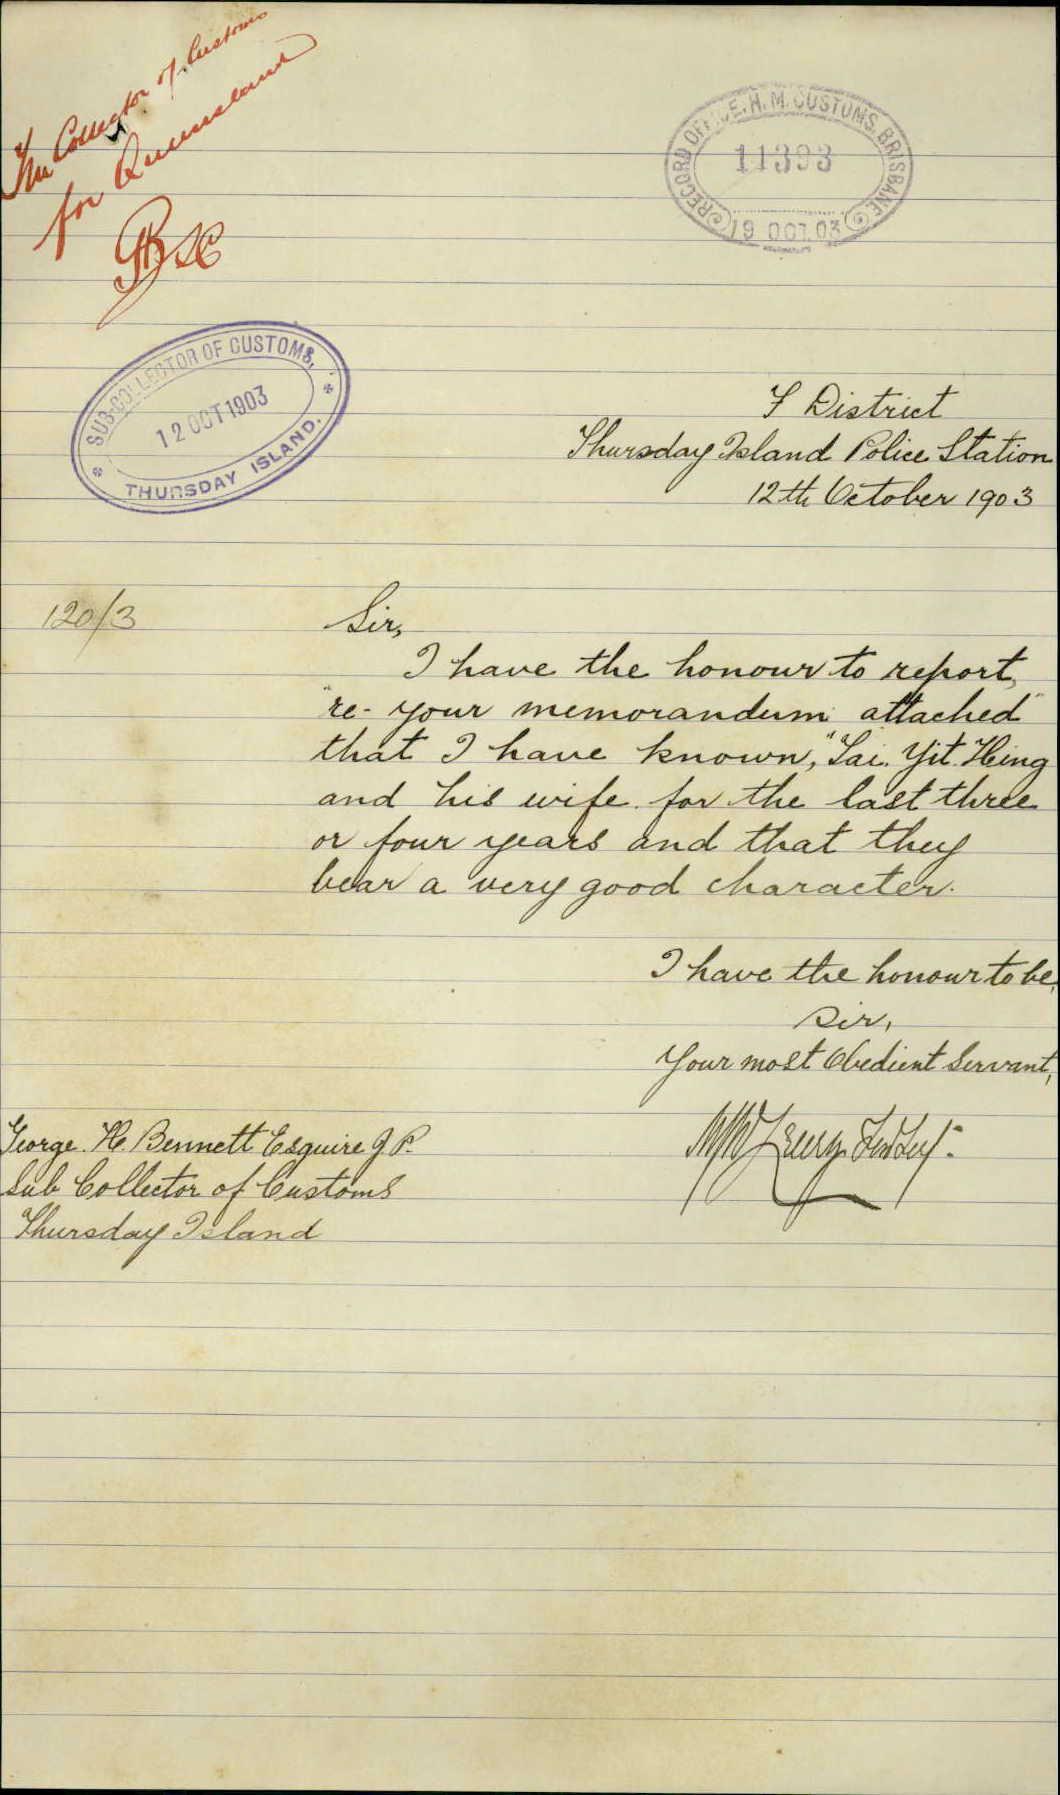 The Collector of Customs
for Queensland
RECORD OFFICE. H. M. CUSTOMS. BRISBANE
11393
19 OCT. 03
SUB-COLLECTOR OF CUSTOMS,
12 OCT 1903
THURSDAY ISLAND.
District
Thursday Island Police Station
12th October 1903
120/3
Sir,
I have the honour to report,
"re- your memorandum attached"
that I have known, "Tai. Yit. Hing
and his wife for the last three
or four years and that they
bear a very good character.
I have the honour to be,
Sir,
Your most Obedient Servant,
George. H. Bennett Esquire J. P.
Sub Collector of Customs
Thursday Island